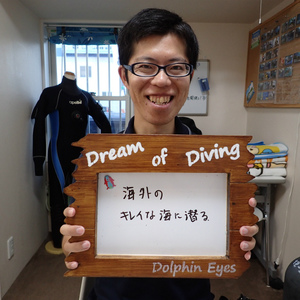 Dream of Diving
海外の
キレイな海に潜る。
Dolphin Eyes